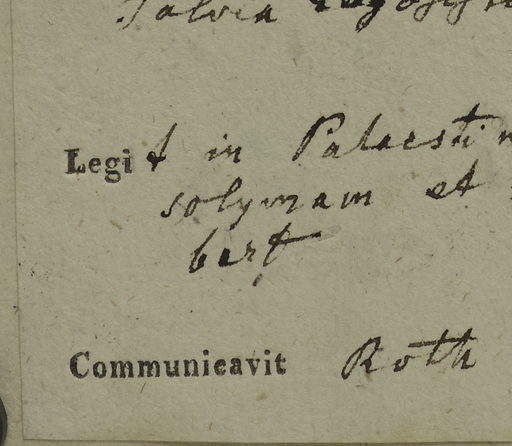 Salvia
Legit in Palaesti
solymam et
bert
Communicavit Roth